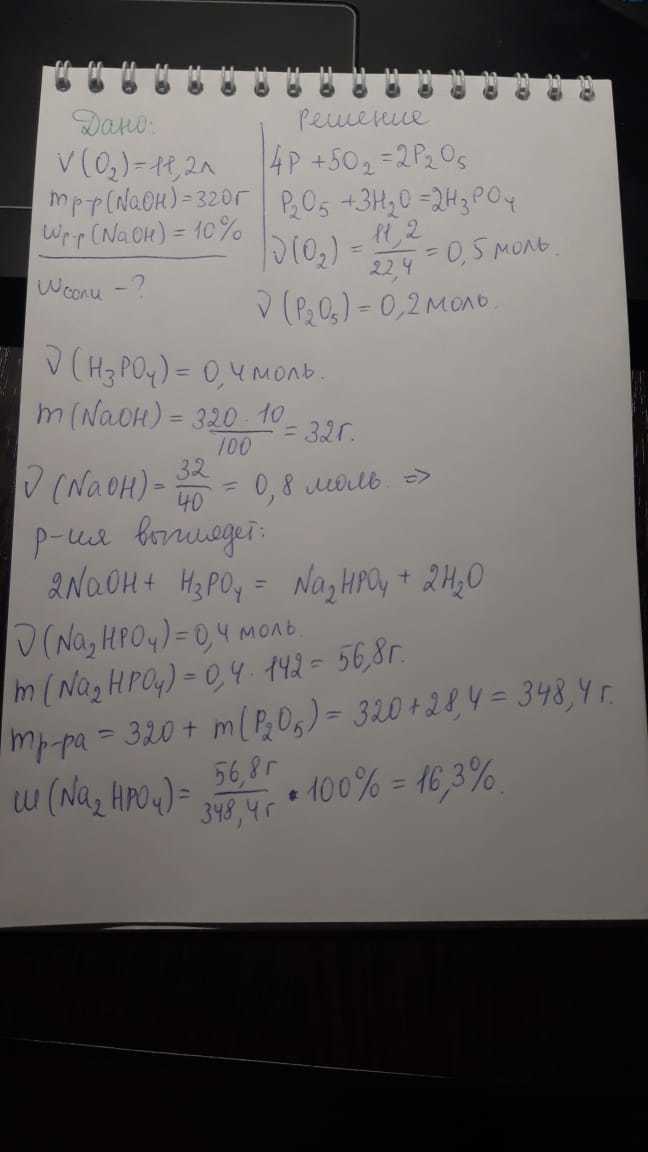 Дано:
V(O₂)=11,2л
mр-р(NaOH)=320г
ωр-р(NaOH)=10%
ωсоли -?
Решение
4P+5O₂=2P₂O₅
P₂O₅+3H₂O=2H₃PO₄
ν(O₂)=11,2/22,4=0,5 моль.
ν(P₂O₅)=0,2моль.
ν(H₃PO₄)=0,4моль.
m(NaOH)=320·10/100=32г.
ν(NaOH)=32/40=0,8 моль. =>
р-ия выглядет:
2NaOH+H₃PO₄=Na₂HPO₄+2H₂O
ν(Na₂HPO₄)=0,4 моль.
m(Na₂HPO₄)=0,4·142=56,8г.
mр-ра=320+m(P₂O₅)=320+28,4=348,4г.
ω(Na₂HPO₄)=56,8г/348,4г·100%=16,3%.